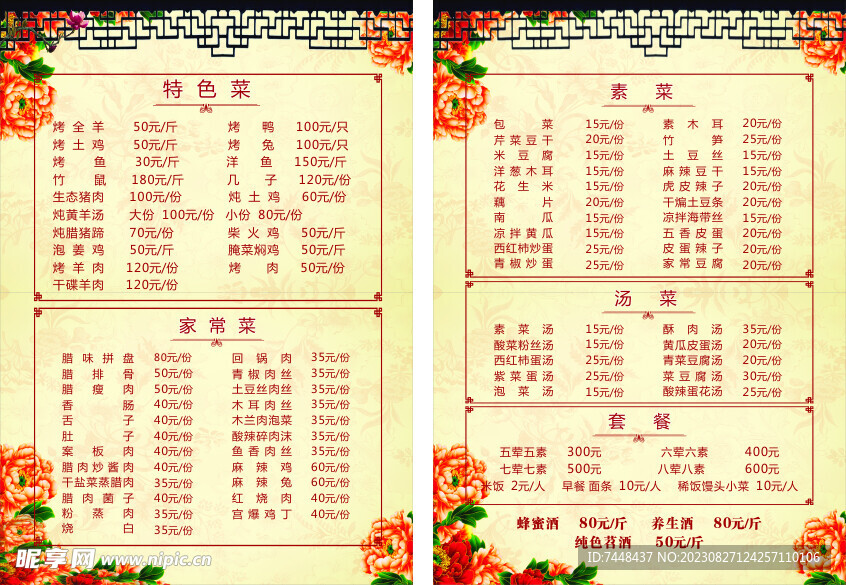 特色菜
烤全羊 50元/斤 烤鸭 100元/只
烤土鸡 50元/斤 烤兔 100元/只
烤鱼 30元/斤 洋鱼 150元/斤
竹鼠 180元/斤 几子 120元/份
生态猪肉 100元/份 炖土鸡 60元/份
炖黄羊汤 大份 100元/份 小份 80元/份
炖腊猪蹄 70元/份 柴火鸡 50元/斤
泡姜鸡 50元/斤 腌菜焖鸡 50元/斤
烤羊肉 120元/份 烤肉 50元/份
干碟羊肉 120元/份
家常菜
腊味拼盘 80元/份 回锅肉 35元/份
腊排骨 50元/份 青椒肉丝 35元/份
腊瘦肉 50元/份 土豆丝肉丝 35元/份
香肠 40元/份 木耳肉丝 35元/份
舌子 40元/份 木兰肉泡菜 35元/份
肚子 40元/份 酸辣碎肉沫 35元/份
案板肉 40元/份 鱼香肉丝 35元/份
腊肉炒酱肉 40元/份 麻辣鸡 60元/份
干盐菜蒸腊肉 35元/份 麻辣兔 60元/份
腊肉菌子 40元/份 红烧肉 40元/份
粉蒸肉 35元/份 宫爆鸡丁 40元/份
烧白 35元/份
素菜
包菜 15元/份 素木耳 20元/份
芹菜豆干 20元/份 竹笋 25元/份
米豆腐 15元/份 土豆丝 15元/份
洋葱木耳 15元/份 麻辣豆干 15元/份
花生米 15元/份 虎皮辣子 20元/份
藕片 20元/份 干煸土豆条 20元/份
南瓜 15元/份 凉拌海带丝 15元/份
凉拌黄瓜 15元/份 五香皮蛋 20元/份
西红柿炒蛋 25元/份 皮蛋辣子 20元/份
青椒炒蛋 25元/份 家常豆腐 20元/份
汤菜
素菜汤 15元/份 酥肉汤 35元/份
酸菜粉丝汤 15元/份 黄瓜皮蛋汤 20元/份
西红柿蛋汤 25元/份 青菜豆腐汤 20元/份
紫菜蛋汤 25元/份 菜豆腐汤 30元/份
泡菜汤 15元/份 酸辣蛋花汤 25元/份
套餐
五荤五素 300元 六荤六素 400元
七荤七素 500元 八荤八素 600元
米饭 2元/人 早餐 面条 10元/人 稀饭馒头小菜 10元/人
蜂蜜酒 80元/斤 养生酒 80元/斤
纯色苕酒 50元/斤
昵享网 www.nipic.cn
ID:7448437 NO:20230827124257110106